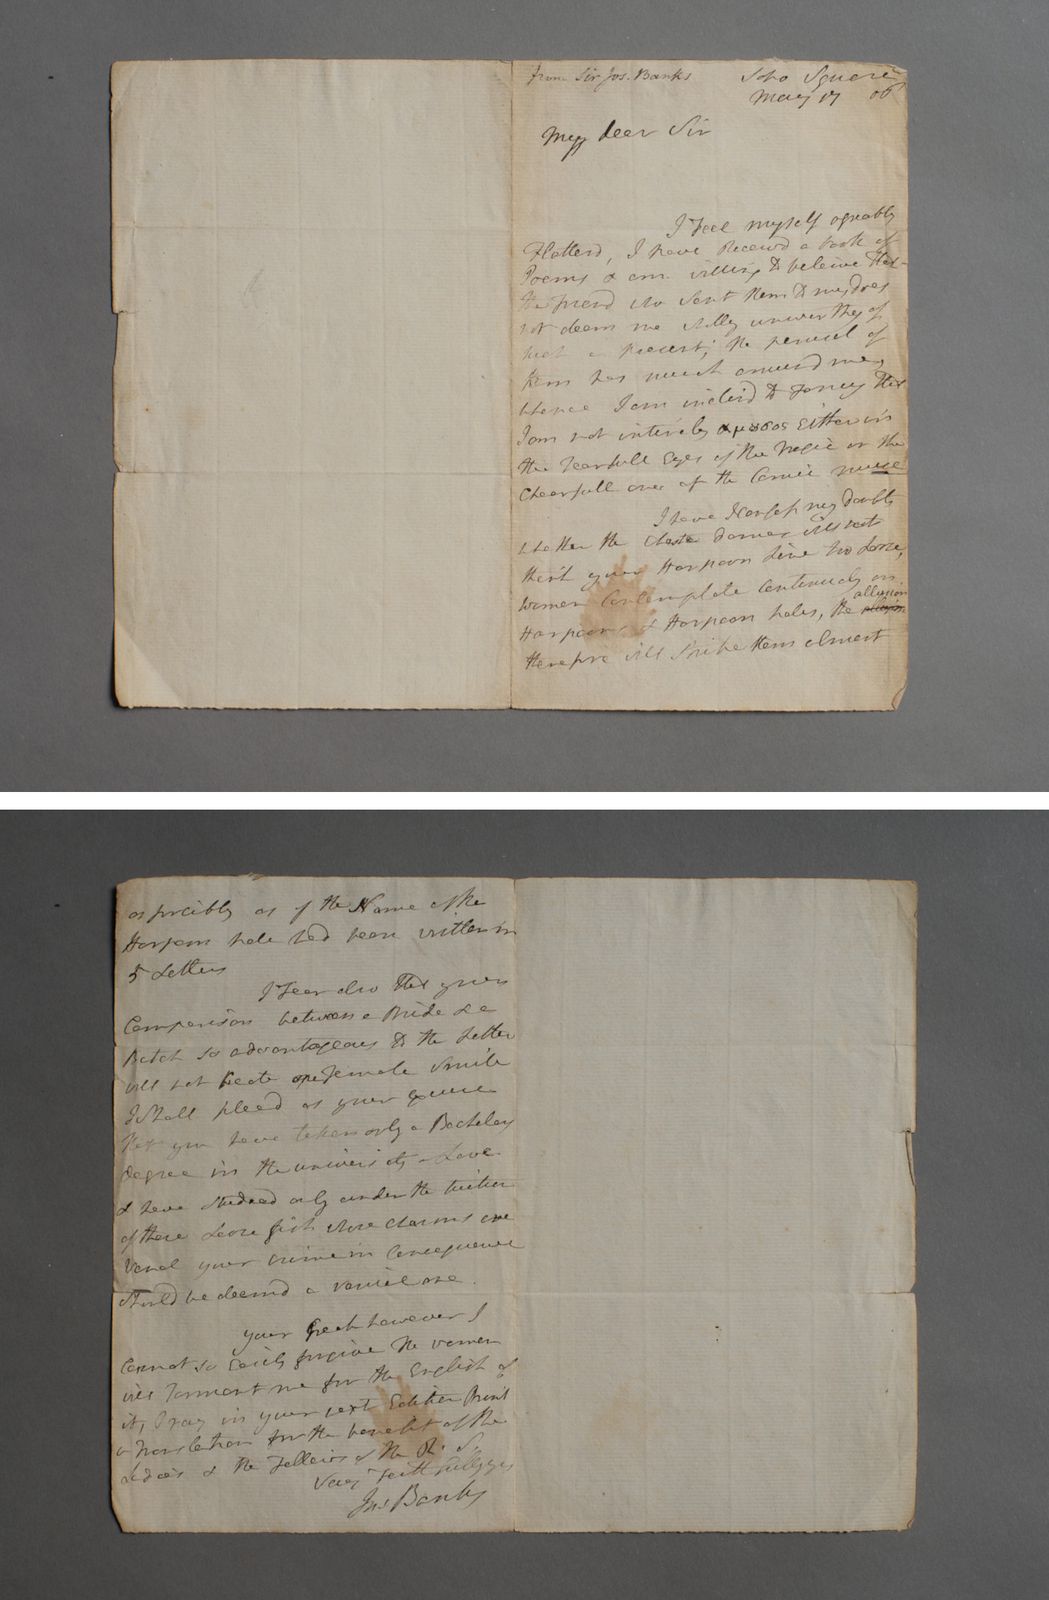 from Sir Jos. Banks
Soho Square
May 17 06
My dear Sir
I Feel myself agreably
Flatterd, I have Receivd a book of
Poems & am willing to beleive that
the friend who sent them to me does
not deem me wholly unworthy of
such a present; the perusal of
them has much amusd me,
whence I am inclind to Fancy that
I am not intirely αμουσος Either in
the Tearfull Eyes of the Tragic or the
Chearfull ones of the Comic muse
I have However my doubts
whether the Chaste dames will not
think your Harpoon Line too Loose,
women Contemplate Continualy on
Harpoons & Harpoon holes, the allusion
therefore will Strike them almost
as forcibly as if the Name of the
Harpoon hole had been written in
5 Letters
I Fear also that your
Comparison between a Bride & a
Bitch so advantageous to the Latter
will not create one Female Smile
I Shall plead as your excuse
that you have taken only a Bachelors
degree in the university of Love
& have Studied only under the tuition
of those Loose fish whose charms are
Venal your crime in Consequence
should be deemd a venial one.
your Greek however I
Cannot so Easily forgive the women
will Torment me for the English of
it, Pray in your next Edition Print
a Translation for the benefit of the
Ladies & the Fellows of the R. S.
Very Faithfully yrs
Jos Banks